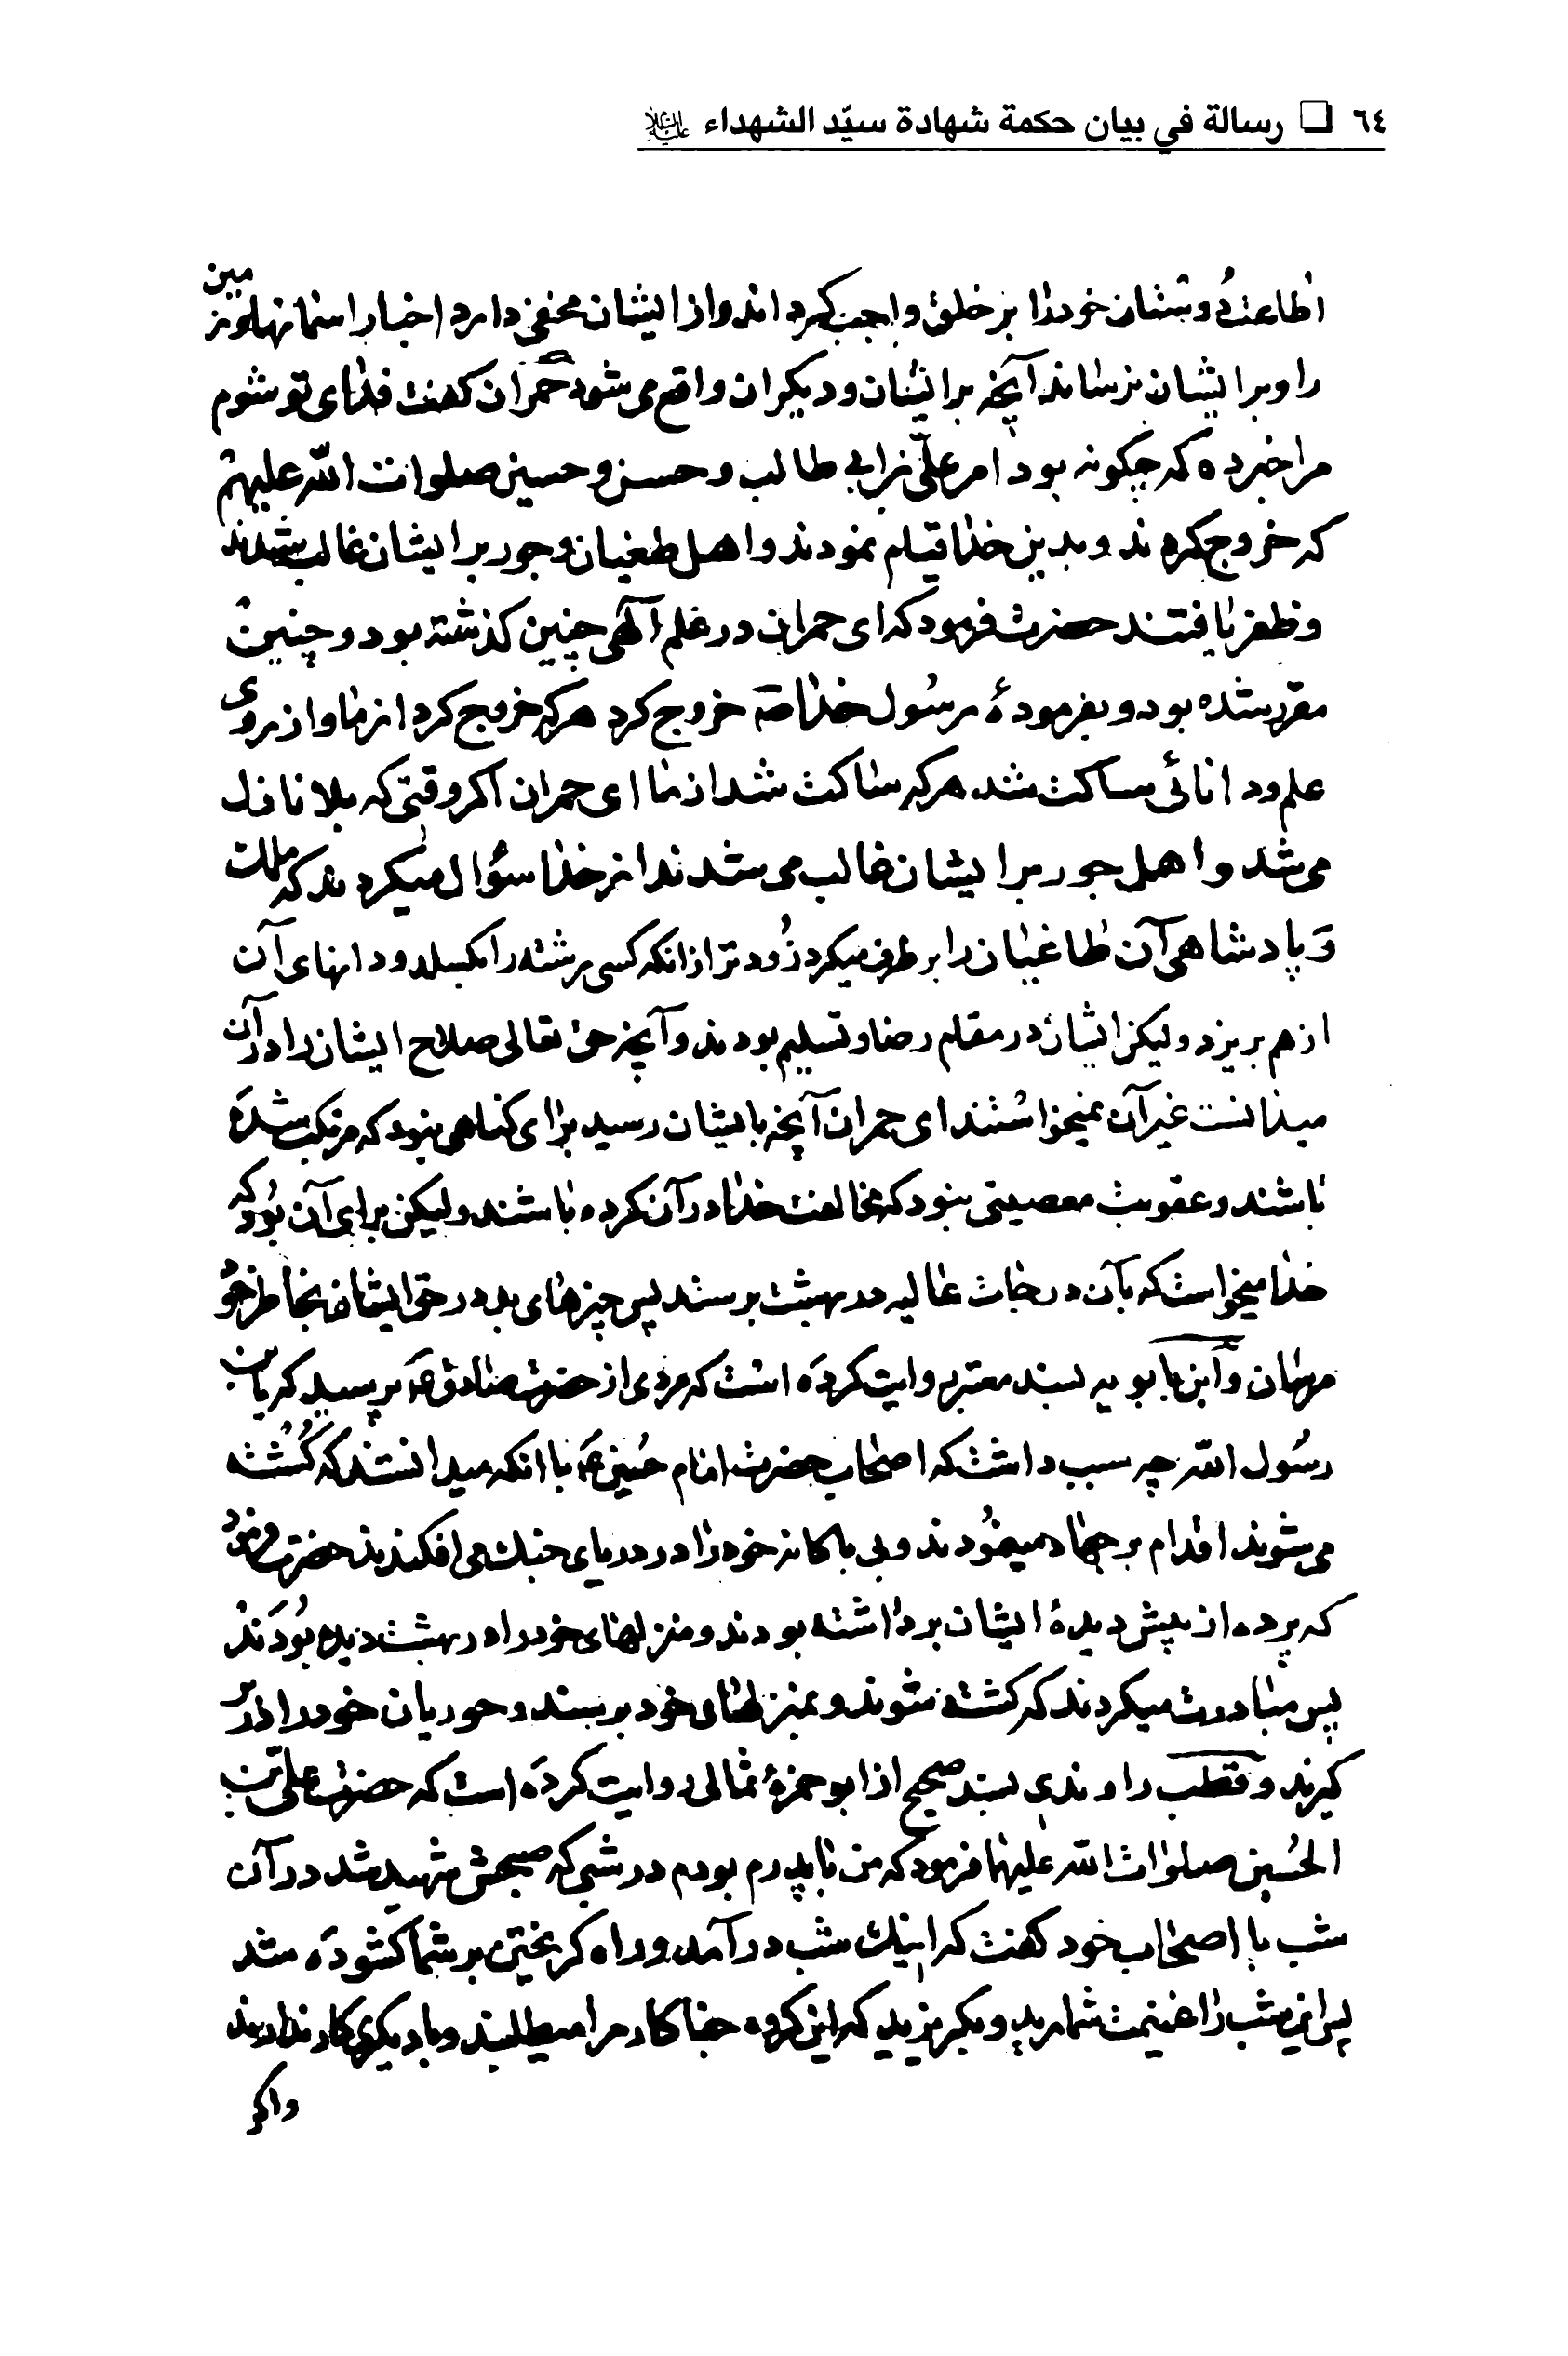 ٦٤ ❏ رسالة في بيان حكمة شهادة سيّد الشهداء عليه السلام
اطاعت دوستان خود را بر خلق واجب كرداند و از ايشان مخفي دارد اخبار اسمانها و زمين
را و بر ايشان نرساند آنچه بر ايشان و ديكران واقع مي شود حمران كفت فداى تو شوم
مرا خبر ده كه چكونه بود امر علىّ بن ابي طالب و حسن و حسين صلوات الله عليهم
كه خروج كردند و بدين خدا قيام نمودند و اهل طغيان و جور بر ايشان غالب شدند
و ظفر يافتند حضرت فرمود كه اى حمران در علم آلهى چنين كذشته بود و چنين
مقرر شده بود و بفرمودۀ رسول خدا صه خروج كرد هر كه خروج كرد از ما و از روى
علم و دانائى ساكت شد هر كه ساكت شد از ما اى حمران اكر وقتى كه بلا نازل
مى شد و اهل جور بر ايشان غالب مى شدند از خدا سؤال ميكردند كه ملك
و پادشاهى آن طاغيان را بر طرف ميكرد زود تر از انكه كسى رشته را بكسلد و دانهاى آن
از هم بريزد و ليكن ايشان در مقام رضا و تسليم بودند و آنچه حق تعالى صلاح ايشان را در آن
ميدانست غير آن نميخواستند اى حمران آنچه بايشان رسيد براى كناهى نبود كه مرتكب شده
باشند و عقوبت معصيتى نبود كه مخالفت خدا در آن كرده باشند و ليكن براى آن بود كه
خدا ميخواست كه بآن درجات عاليه در بهشت برسند پس چيزهاى بد در حق ايشان بخاطر خود
مرسان و ابن بابويه بسند معتبر روايت كرده است كه مردى از حضرت صادق ع پرسيد كه يا بن
رسول الله چه سبب داشت كه اصحاب حضرت امام حسين ع با انكه ميدانستند كه كشته
مى شوند اقدام بر جهاد مينمودند و بي باكانه خود را در درياى جنك مى افكندند حضرت فرمود
كه پرده از پيش ديدۀ ايشان برداشته بودند و منزلهاى خود را در بهشت ديده بودند
پس مبادرت ميكردند كه كشته شوند و بمنزلهاى خود برسند و حوريان خود را در بر
كيرند و قطب راوندى بسند صحيح از ابو حمزۀ ثمالى روايت كرده است كه حضرت على بن
الحسين صلوات الله عليهما فرمود كه من با پدرم بودم در شبى كه صبحش شهيد شد در آن
شب با اصحاب خود كفت كه اينك شب درآمد و راه كريختن بر شما كشوده شد
پس اين شب را غنيمت شماريد و بكريزيد كه اين كروه جفا كار مرا ميطلبند و با ديكرى كار ندارند
و اكر